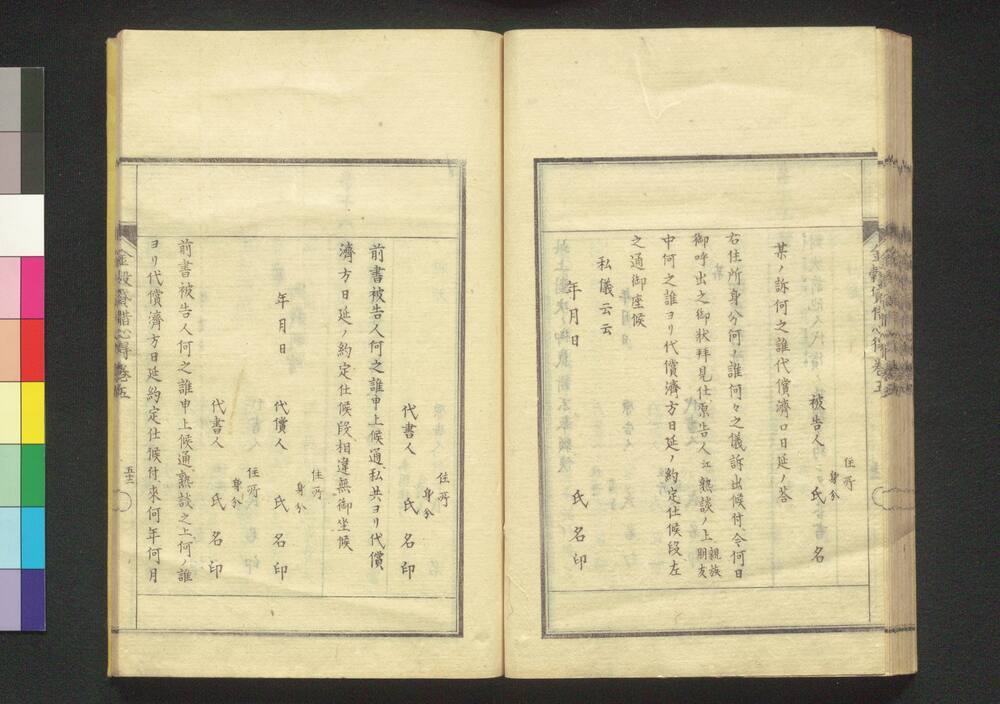 某ノ訴何之誰代償濟口日延ノ答
住所
身分
被告人 氏名
右住所身分何ノ誰何々之儀訴出候付今何日
御呼出之御状拜見仕原告人江熟談ノ上親族朋友
中何之誰ヨリ代償濟方日延ノ約定仕候段左
之通御座候
私儀云云
年月日 氏名印
住所
身分
代書人 氏名印
前書被告人何之誰申上候通私共ヨリ代償
濟方日延ノ約定仕候段相違無御坐候
住所
身分
年月日 代償人 氏名印
住所
身分
代書人 氏名印
前書被告人何之誰申上候通熟談之上何ノ誰
ヨリ代償濟方日延約定仕候付來何年何月
金穀貸借心得 巻五